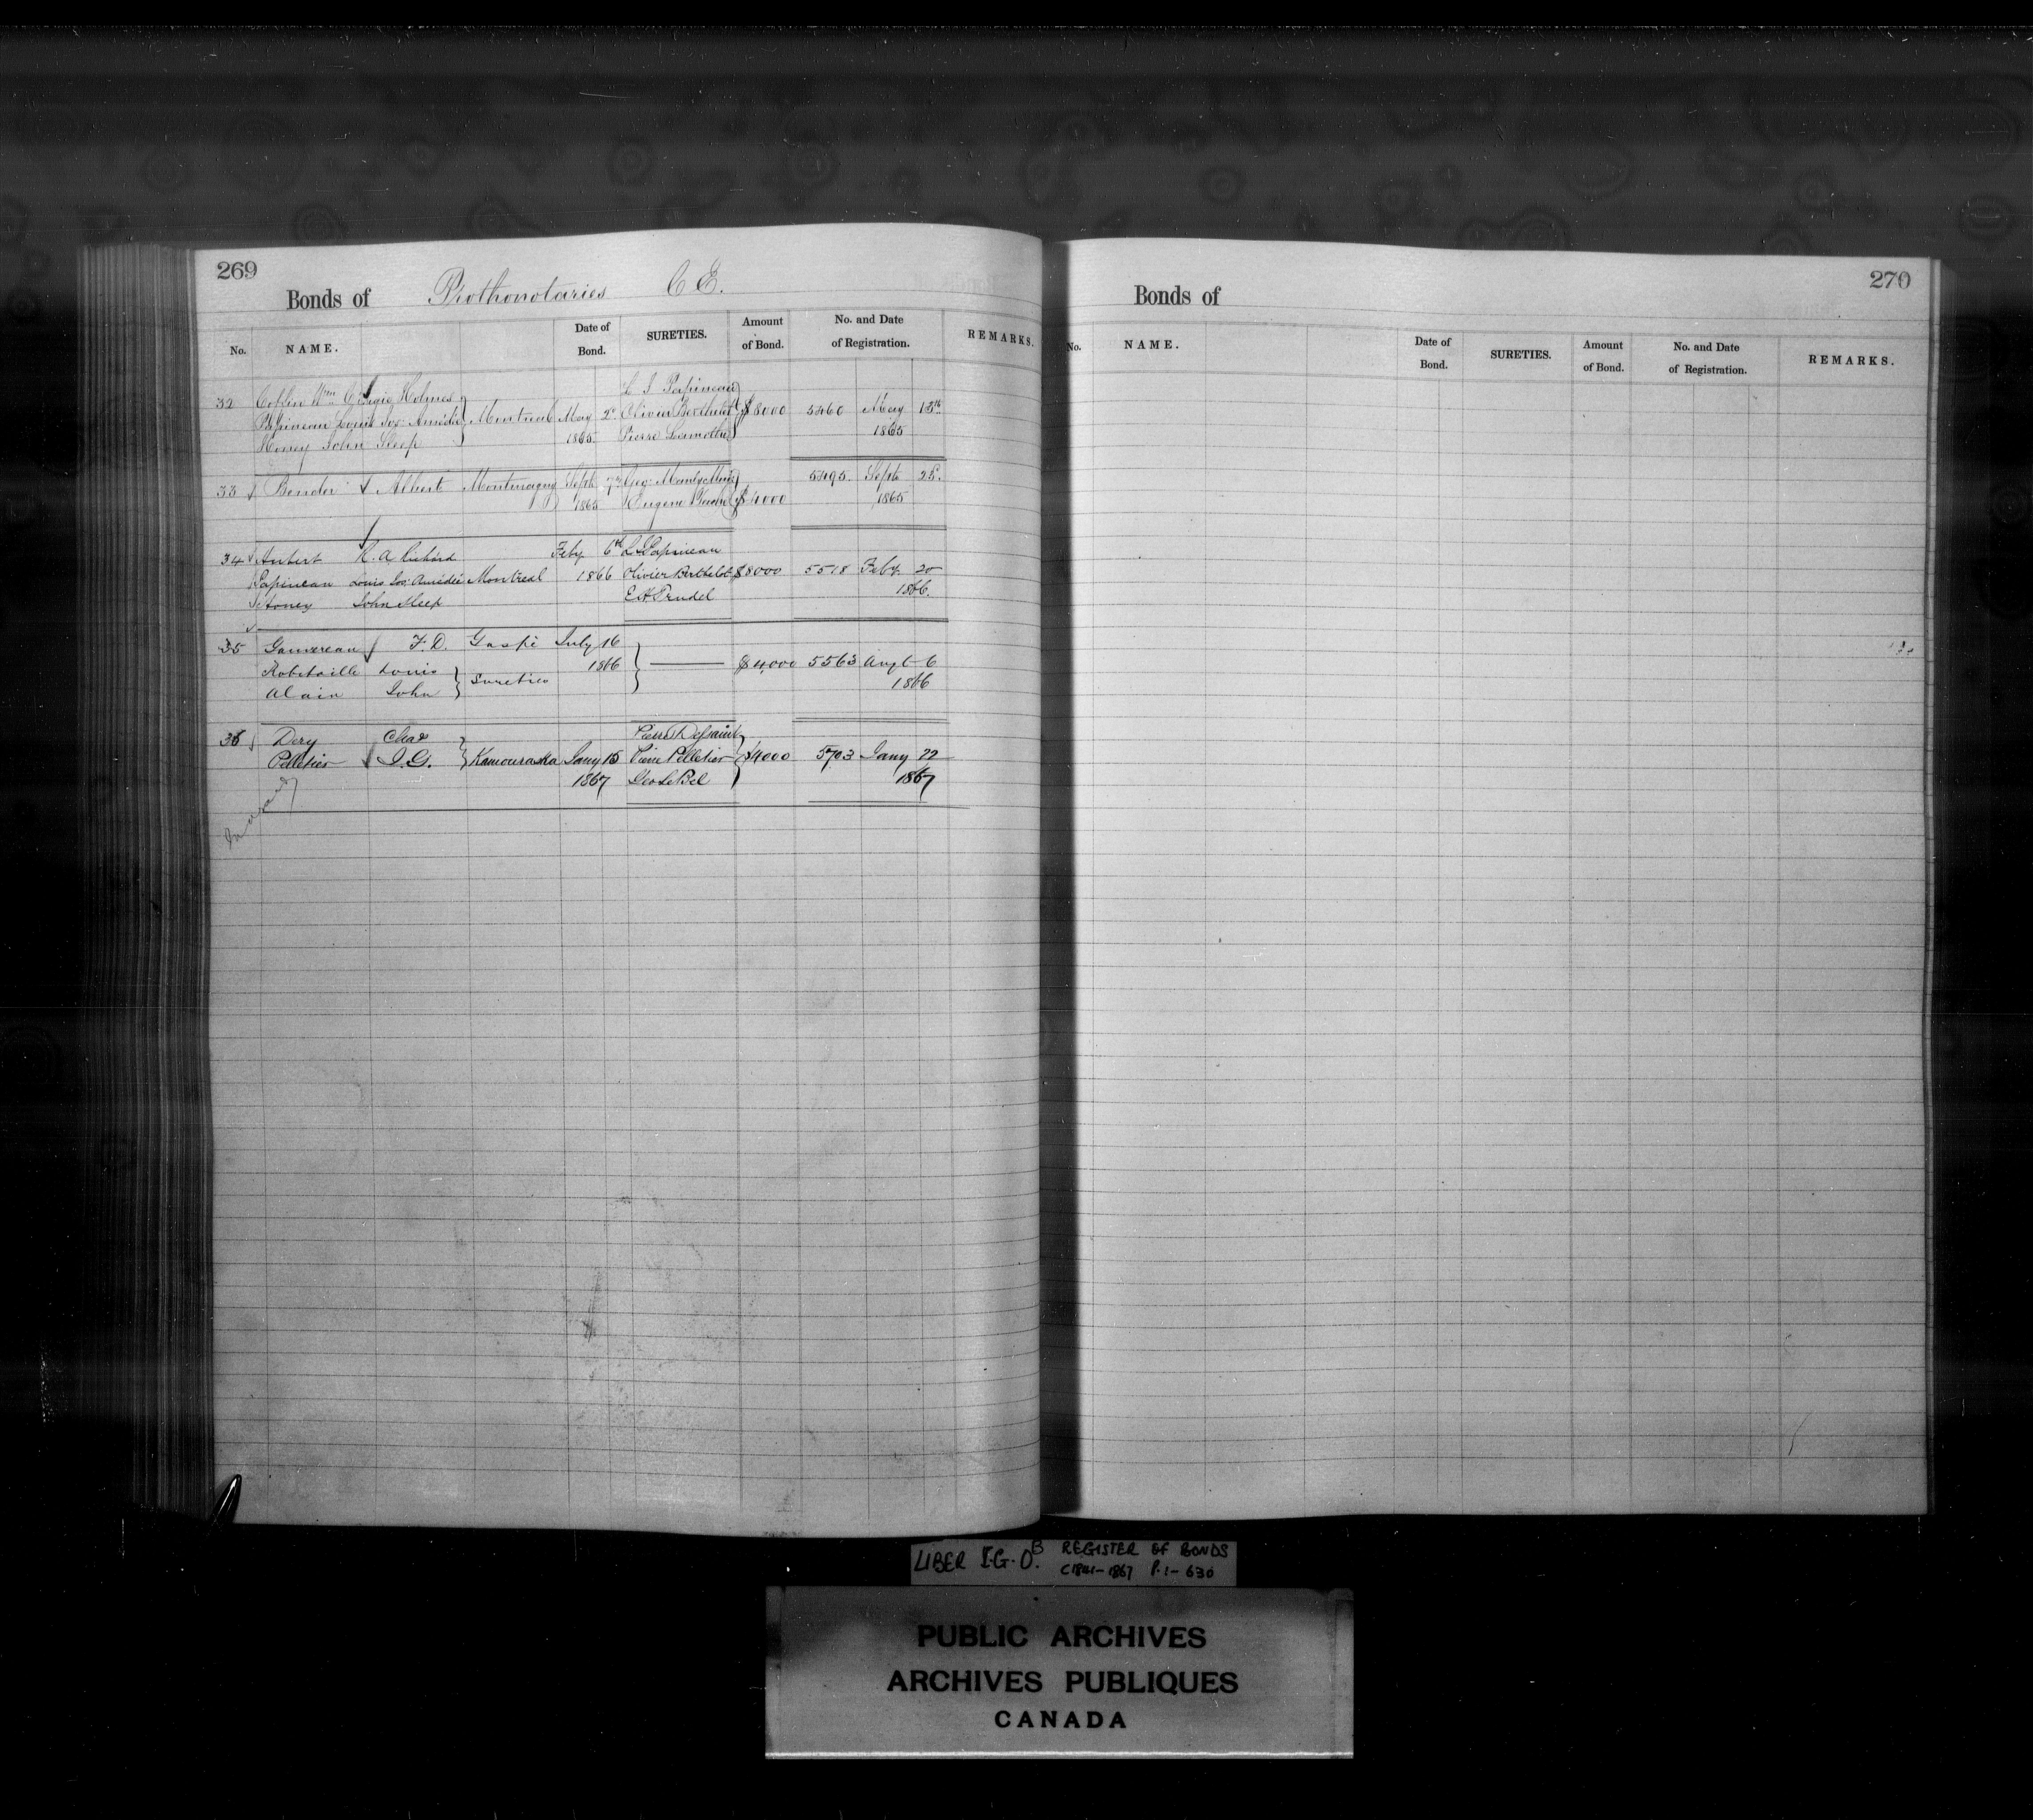 269
Bonds of Prothonotaries C E.
No. NAME. Date of Bond. SURETIES. Amount of Bond. No. and Date of Registration. REMARKS.
L J Papineau
32 Coffin Wm Craigie Holmes
Papineau Louis Jos: Amédée Montreal May 2d Olivier Berthelet $8000 5460 May 13th
Honey John Sleep 1865 Pierre Lamothe 1865
33 Bender Albert Montmagny Sept 7th Geo: 5495. Septr 25.
1865 Eugene $4000 1865
34 Aubert R. A. Richard Feby 6th L J Papineau
Papineau Louis Jos: Amédée Montreal 1866 Olivier Berthelet $8000 5518 Feby 20
Honey John Sleep E A Prudel 1866.
35 Gauvreau F. D. Gaspé July 16
Robitaille Louis 1866 $4,000 5563 Augt 6
Alain John Sureties 1866
36 Dery Chas Pierre Dessaint
Pelletier J. G. Kamouraska Jany 15 Pierre Pelletier $4000 5703 Jany 22
1867 Geo LeBel 1867
270
Bonds of
No. NAME. Date of Bond. SURETIES. Amount of Bond. No. and Date of Registration. REMARKS.
LIBER I.G.O.B REGISTER OF BONDS
C1841-1867 P.1-630
PUBLIC ARCHIVES
ARCHIVES PUBLIQUES
CANADA